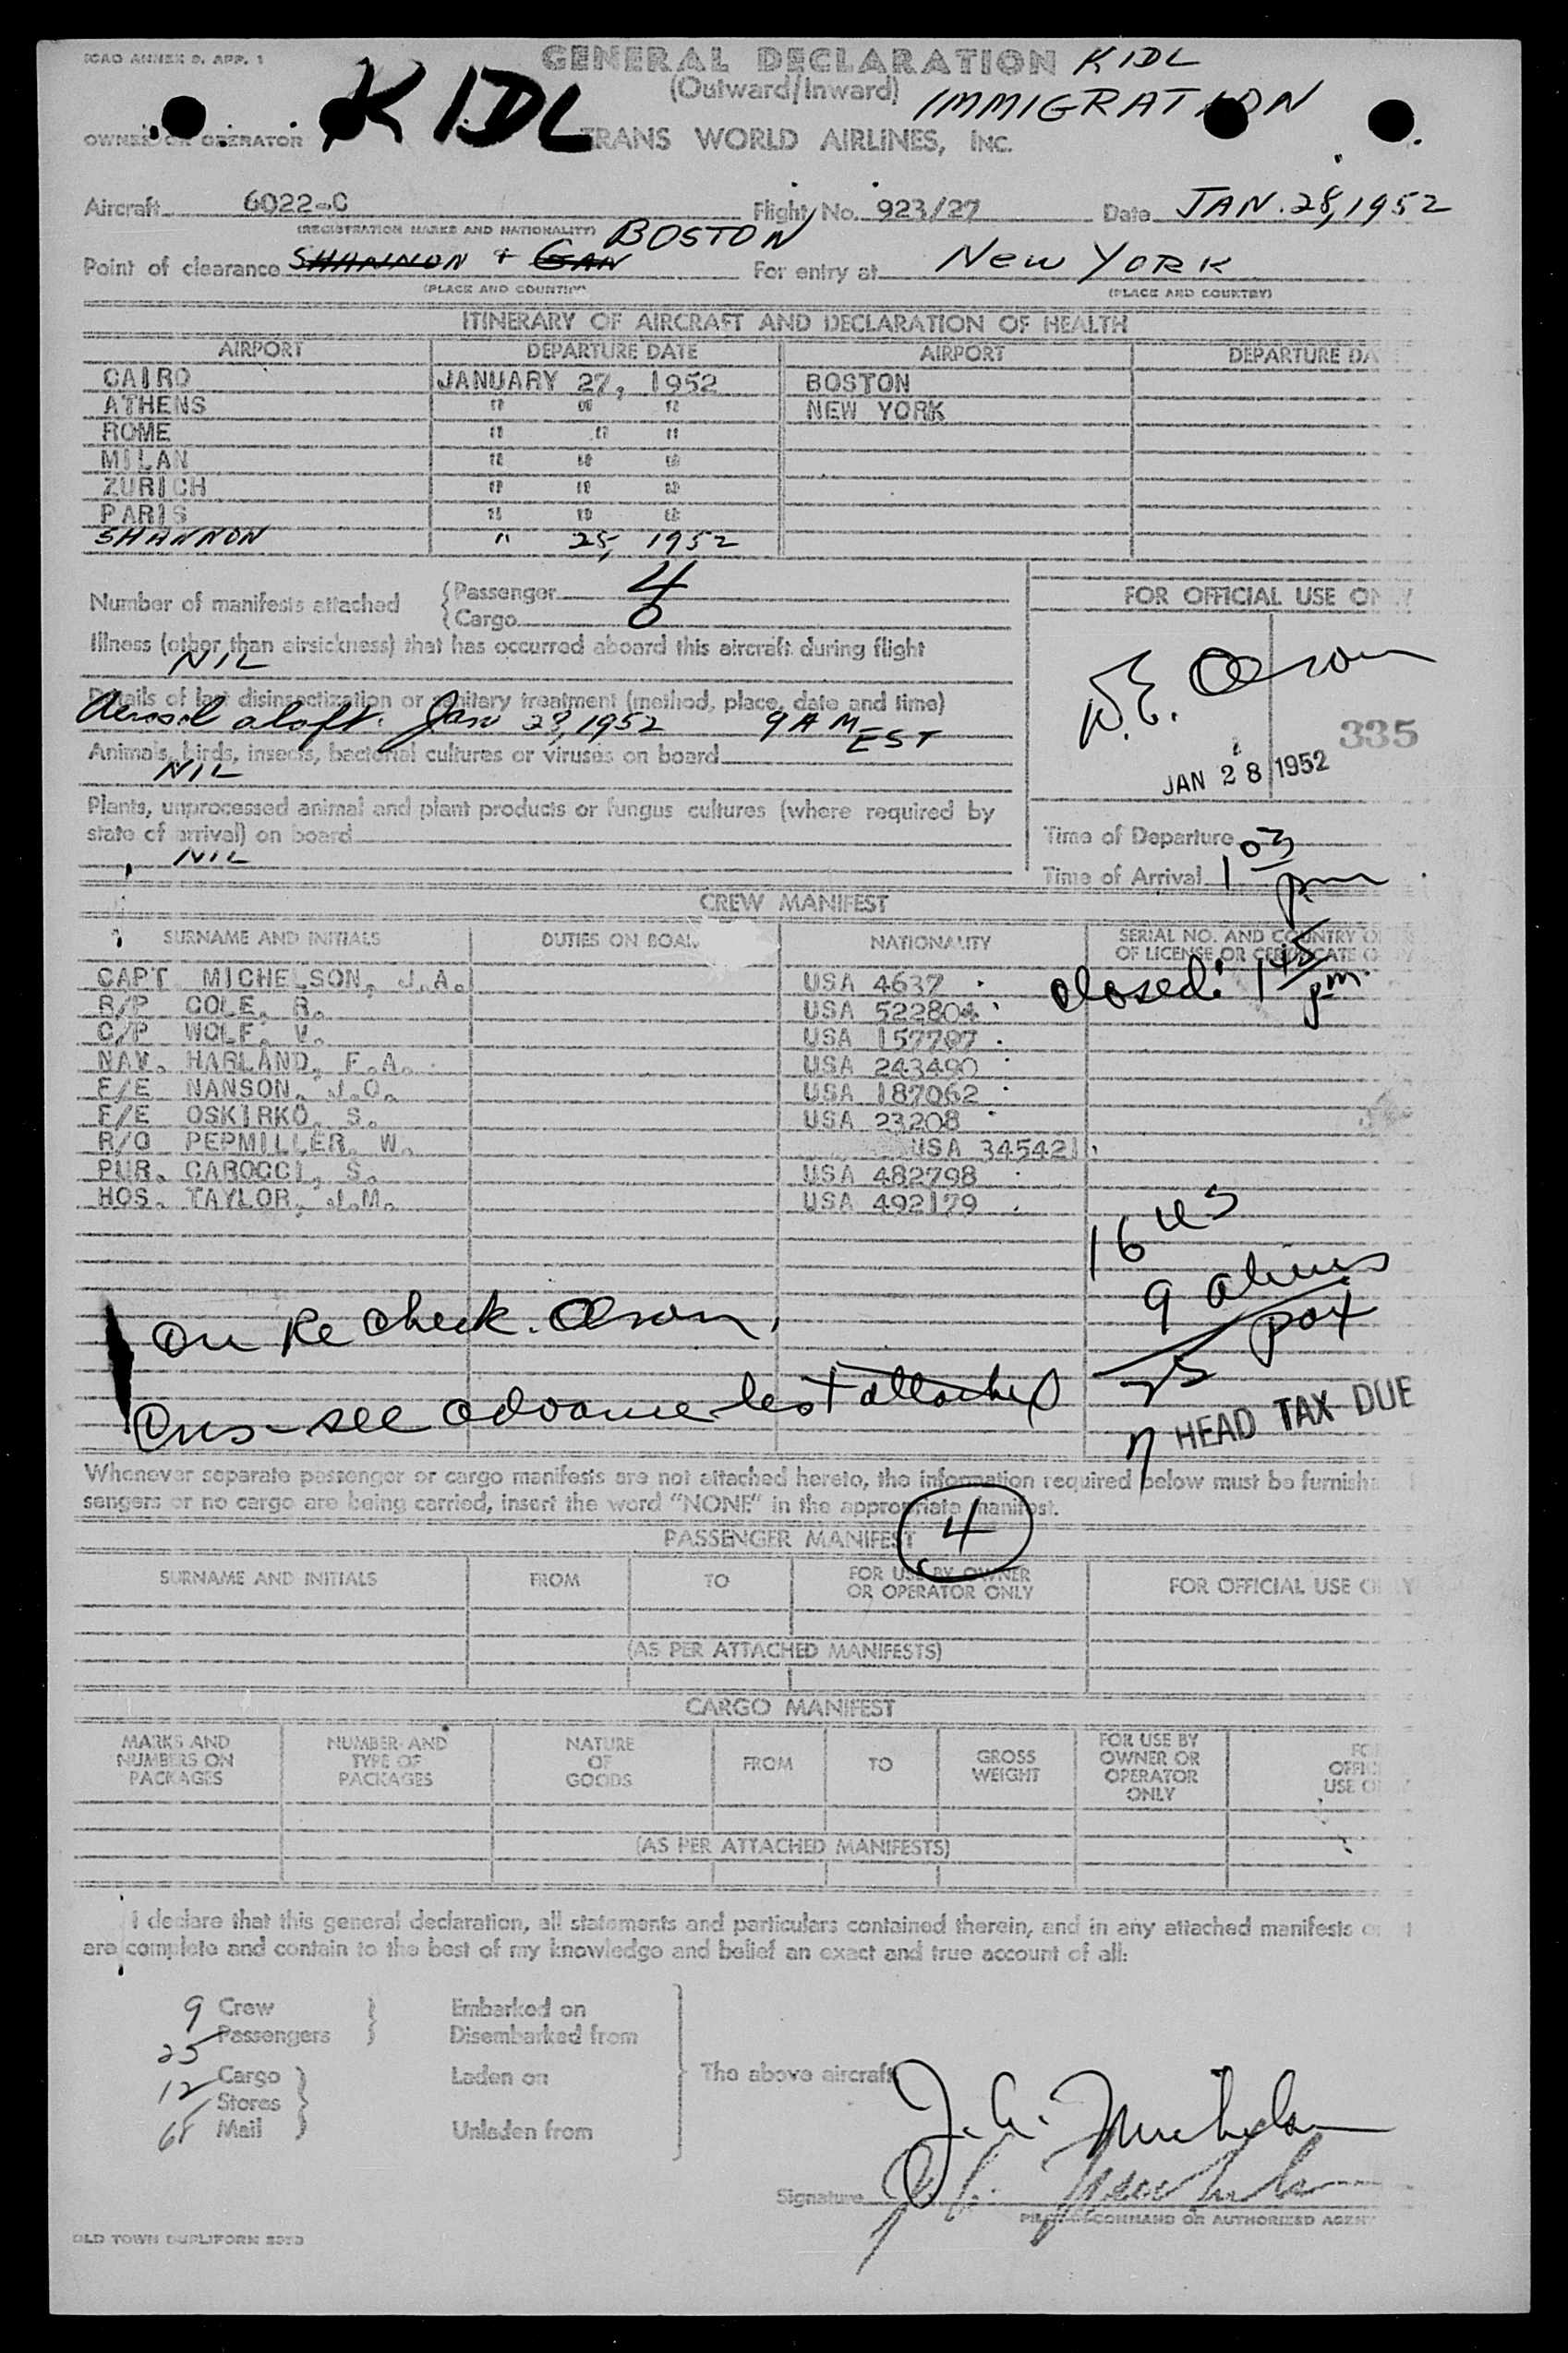 ICAO ANNEX 9, APP. 1
GENERAL DECLARATION KIDL
(Outward/Inward) IMMIGRATION
KIDL
OWNER OR OPERATOR TRANS WORLD AIRLINES, INC.
Aircraft 6022-C Flight No. 923/27 Date JAN. 28, 1952
(REGISTRATION MARKS AND NATIONALITY)
Point of clearance SHANNON + GAN BOSTON For entry at New YORK
(PLACE AND COUNTRY) (PLACE AND COUNTRY)
ITINERARY OF AIRCRAFT AND DECLARATION OF HEALTH
AIRPORT DEPARTURE DATE AIRPORT DEPARTURE DA
CAIRO JANUARY 27, 1952 BOSTON
ATHENS " " " NEW YORK
ROME " " "
MILAN " " "
ZURICH " " "
PARIS " " "
SHANNON " 28, 1952
Number of manifests attached
Passenger 4
Cargo 0
FOR OFFICIAL USE ONLY
Illness (other than airsickness) that has occurred aboard this aircraft during flight
NIL
Details of last disinsectization or sanitary treatment (method, place, date and time)
Aerosol aloft. Jan 28, 1952 9 AM EST
Animals, birds, insects, bacterial cultures or viruses on board
NIL
Plants, unprocessed animal and plant products or fungus cultures (where required by
state of arrival) on board
NIL
Olson
335
JAN 28 1952
Time of Departure
Time of Arrival 1 03 pm
CREW MANIFEST
SURNAME AND INITIALS DUTIES ON BOAR NATIONALITY SERIAL NO. AND COUNTRY O
OF LICENSE OR CERTIFICATE O
closed: 1 45 pm.
CAPT MICHELSON, J.A. USA 4637
R/P COLE, R. USA 522804
C/P WOLF, V. USA 157707
NAV. HARLAND, F.A. USA 243490
F/E NANSON, J.O. USA 187062
F/E OSKIRKO, S. USA 23208
R/O PEPMILLER, W. USA 345421
PUR. CAROCCI, S. USA 482798
HOS. TAYLOR, J.M. USA 492179
16 US
9 aliens
25 pax
on Re check. Olson
see advance list attached
HEAD TAX DUE
Whenever separate passenger or cargo manifests are not attached hereto, the information required below must be furnish
sengers or no cargo are being carried, insert the word "NONE" in the appropriate manifest.
PASSENGER MANIFEST 4
SURNAME AND INITIALS FROM TO FOR USE BY OWNER OR OPERATOR ONLY FOR OFFICIAL USE ONLY
(AS PER ATTACHED MANIFESTS)
CARGO MANIFEST
MARKS AND NUMBERS ON PACKAGES NUMBER AND TYPE OF PACKAGES NATURE OF GOODS FROM TO GROSS WEIGHT FOR USE BY OWNER OR OPERATOR ONLY FO OFFIC USE ON
(AS PER ATTACHED MANIFESTS)
I declare that this general declaration, all statements and particulars contained therein, and in any attached manifests
are complete and contain to the best of my knowledge and belief an exact and true account of all:
9 Crew Embarked on
25 Passengers Disembarked from
12 Cargo Laden on The above aircraft
Stores
68 Mail Unladen from
J. A. Michelson
Signature
PILOT COMMAND OR AUTHORIZED AGENT
OLD TOWN DUPLIFORM